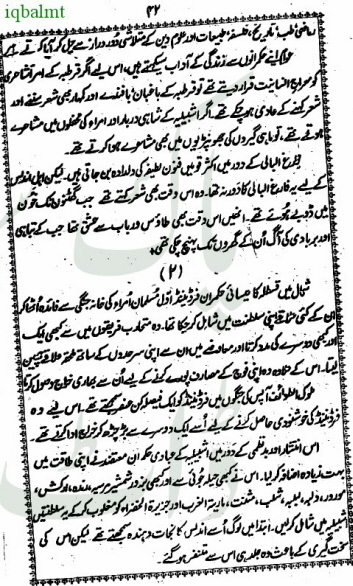 iqbalmt
۴۲
ریاضی، طب، تاریخ، فلسفہ، طبیعات اور علوم دین کے متلاشی دور دراز سے چل کر آیا کرتے تھے
عوام اپنے حکمرانوں سے زندگی کے آداب سیکھتے ہیں، اس لیے اگر قرطبہ کے امراء شاعری
کو معراج انسانیت قرار دیتے تھے تو قرطبہ کے باغبان، بافندے اور کمہار بھی شعر سننے اور
شعر کہنے کے عادی ہو چکے تھے۔ اگر اشبیلیہ کے شاہی دربار اور امراء کی محفلوں میں مشاعرے
ہوتے تھے، تو ماہی گیروں کی جھونپڑیوں میں بھی مشاعرے ہوا کرتے تھے۔
فارغ البالی کے دور میں اکثر قومیں فنون لطیفہ کی دلدادہ بن جاتی ہیں۔ لیکن اہل اندلس
کے لیے یہ فارغ البالی کا دور نہ تھا۔ وہ اس وقت بھی شعر کہتے تھے جب گھٹنوں تک خون
میں ڈوبے ہوئے تھے۔ انھیں اس وقت بھی طاؤس و رباب سے عشق تھا جب کہ تباہی
اور بربادی کی آگ اُن کے گھروں تک پہنچ چکی تھی۔
(۲)
شمال میں قسطلہ کا عیسائی حکمران فرڈیننڈ اوّل مسلمان اُمراء کی خانہ جنگی سے فائدہ اُٹھا کر
ان کے کئی علاقے اپنی سلطنت میں شامل کر چکا تھا۔ وہ متحارب فریقوں میں سے کبھی ایک
اور کبھی دوسرے کی مدد کرتا اور معاوضے میں ان سے اپنی سرحدوں کے ساتھ ملحقہ علاقے چھین
لیتا۔ اس کے علاوہ وہ اپنی فوج کے مصارف پورے کرنے کے لیے اُن سے بھاری خراج وصول کرتا
ملوک الطوائف آپس کی جنگوں میں فرڈیننڈ کو ایک فیصلہ کن عنصر سمجھتے تھے۔ اس لیے وہ
فرڈیننڈ کی خوشنودی حاصل کرنے کے لیے اُسے ایک دوسرے سے بڑھ چڑھ کر خراج ادا کرتے تھے۔
اس انتشار اور بدنظمی کے دور میں اشبیلیہ کے عبادی حکمران معتضد نے اپنی طاقت میں
بہت زیادہ اضافہ کر لیا۔ اس نے کبھی حیلہ جوئی سے اور کبھی بزور شمشیر مرسیہ، رندہ، ارکش،
مورور، ولبہ، لبلہ، شلب، شنت ماریۃ الغرب اور جزیرۃ الخضراء کو مغلوب کر کے یہ سلطنتیں
اشبیلیہ میں شامل کر لیں۔ ابتدا میں لوگ اُسے اندلس کا نجات دہندہ سمجھتے تھے لیکن اس کی
سخت گیری کے باعث وہ جلد ہی اس سے متنفر ہو گئے۔